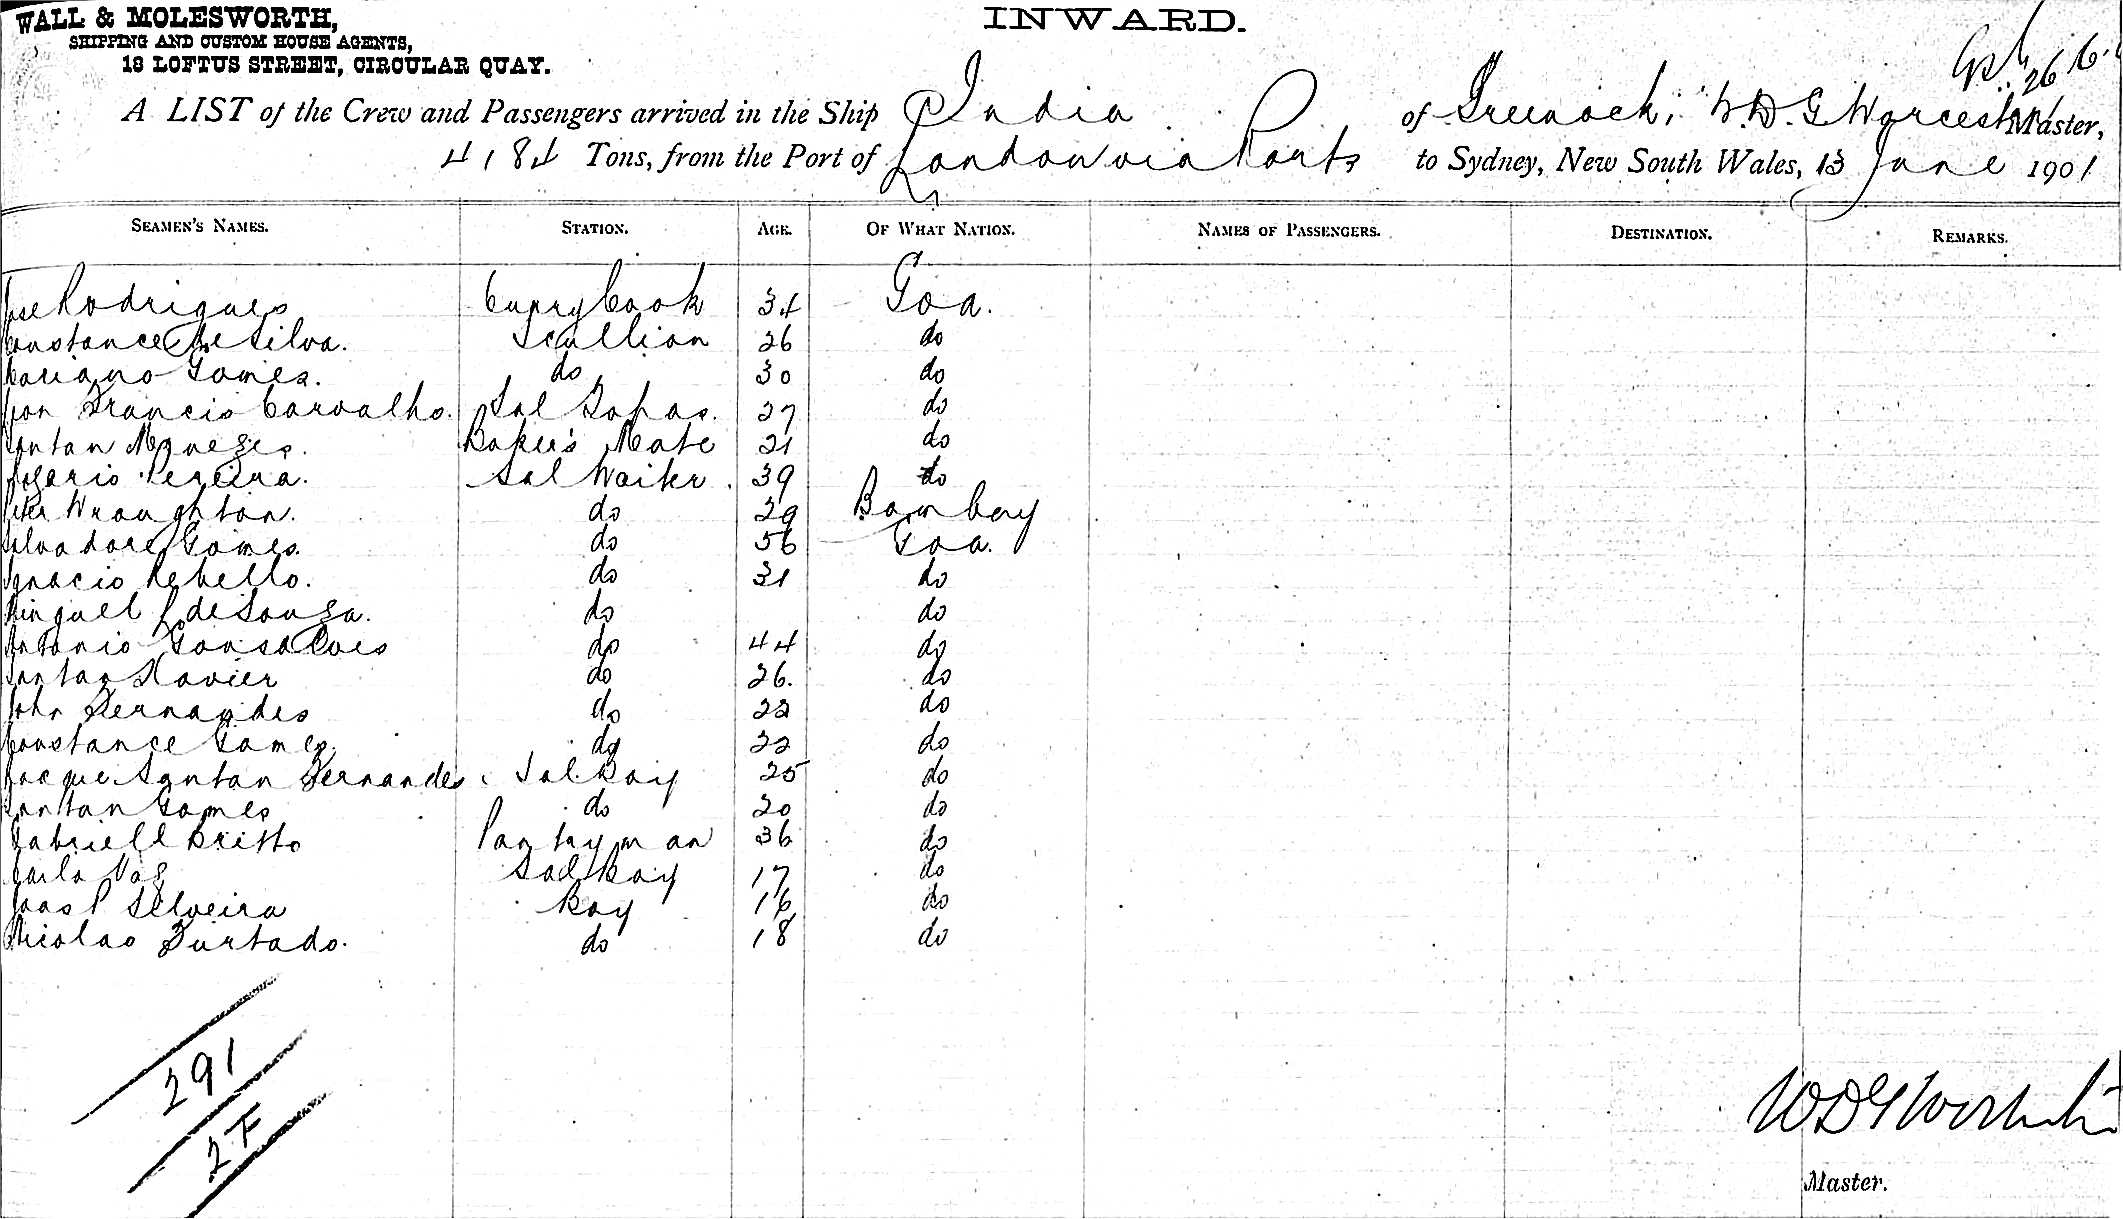 WALL & MOLESWORTH,
SHIPPING AND CUSTOM HOUSE AGENTS,
18 LOFTUS STREET, CIRCULAR QUAY.
INWARD.
26/6
A LIST of the Crew and Passengers arrived in the Ship India of Greenock, W.D.G Worcester Master,
4184 Tons, from the Port of London via Ports to Sydney, New South Wales, 13 June 1901
SEAMEN'S NAMES. STATION. AGE. OF WHAT NATION. NAMES OF PASSENGERS. DESTINATION. REMARKS.
Jose Rodrigues Curry Cook 34 Goa.
Constance De Silva. Scullion 26 do
Mariano Gomes. do 30 do
Francis Carvalho. Sal Topas. 27 do
Santan Menezes. Baker's Mate 21 do
Rogerio Pereira. Sal Waiter. 39 do
Peter Wroughton. do 29 Bombay
Salvadore Gomes. do 56 Goa.
Ignacio Rebello. do 31 do
Minguel P de Souza. do do
Antonio Gonsalves do 44 do
Santan Xavier do 26. do
John Fernandes do 22 do
Constance Gomes do 22 do
Santan Fernandes. Sal. Boy 25 do
Santan Gomes do 20 do
Gabriell Britto Pantryman 36 do
Carlo Vaz Sal Boy 17 do
Joao P Silveira Boy 16 do
Nicolao Furtado. do 18 do
291
27
WDG Worcester
Master.